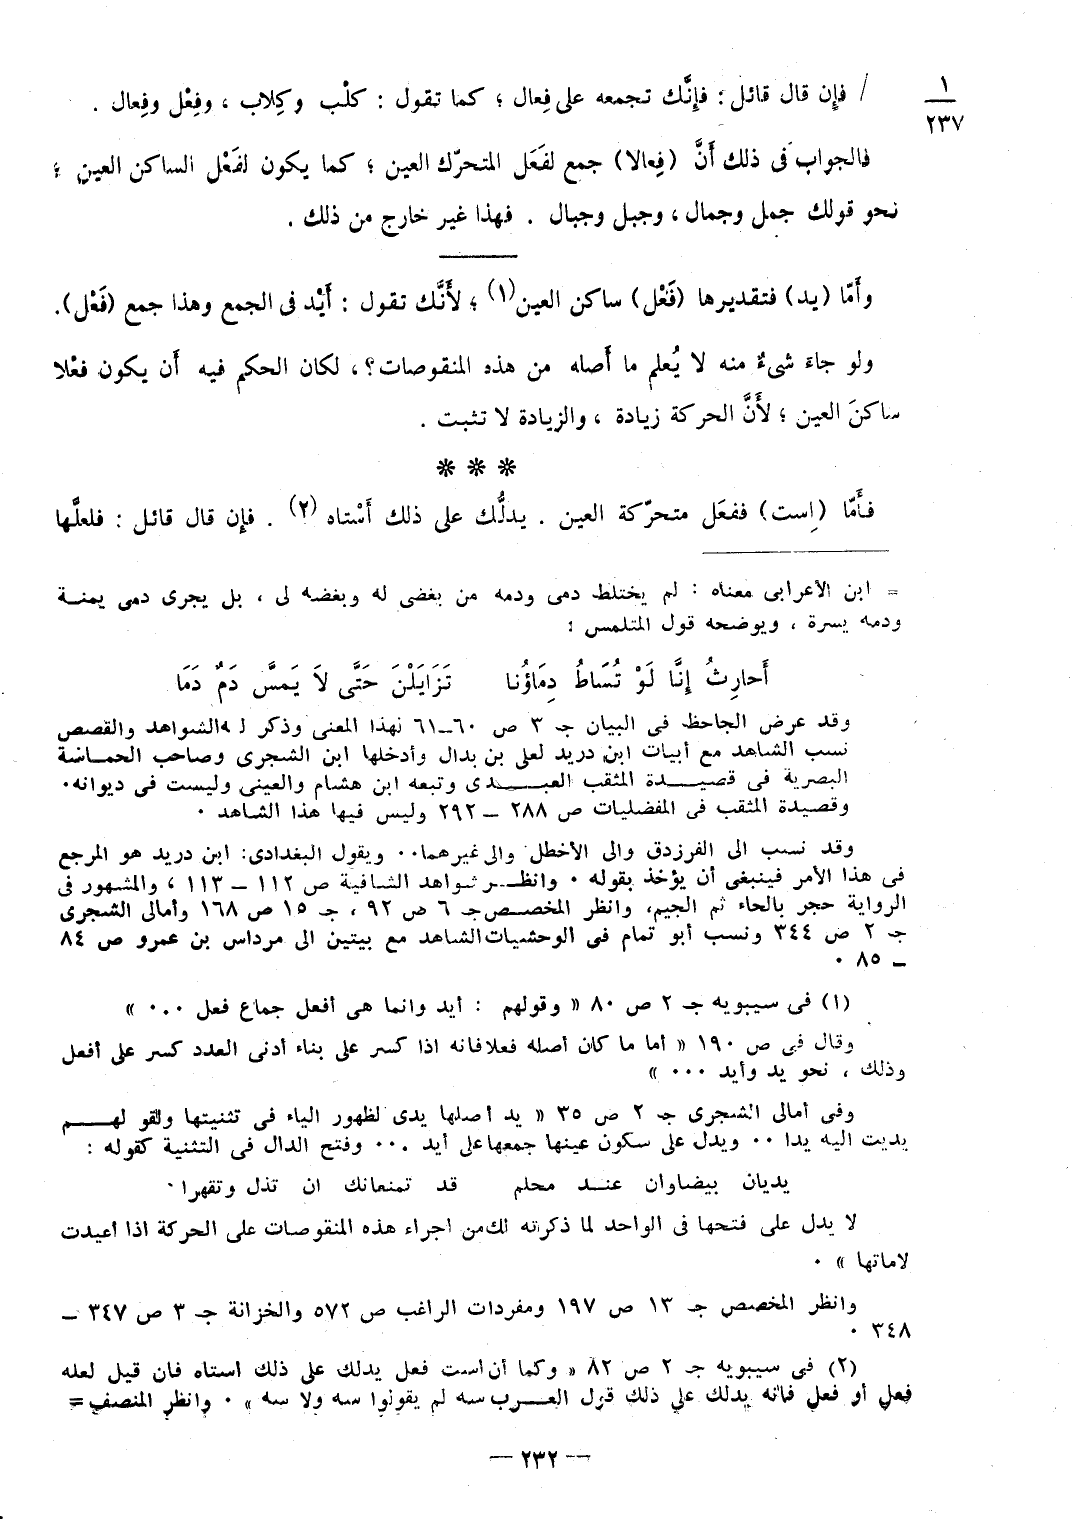 ١
٢٣٧
/ فإن قال قائل : فإنَّك تجمعه على فِعال ؛ كما تقول : كلْب وكِلاب ، وفِعْل وفِعال .
فالجواب فى ذلك أَنَّ (فِعالا) جمع لفَعَل المتحرّك العين ؛ كما يكون لفَعْل الساكن العين ؛
نحو قولك جمل وجمال ، وجبل وجبال . فهذا غير خارج من ذلك .
وأمّا (يد) فتقديرها (فَعْل) ساكن العين(١) ؛ لأَنَّك تقول : أَيْد فى الجمع وهذا جمع (فَعْل).
ولو جاءَ شىءٌ منه لا يُعلم ما أَصله من هذه المنقوصات؟، لكان الحكم فيه أَن يكون فعْلا
ساكنَ العين ؛ لأَنَّ الحركة زيادة ، والزيادة لا تثبت .
* * *
فأَمَّا (اِست) ففعَل متحرّكة العين . يدلُّك على ذلك أَسْتاه (٢) . فإن قال قائل : فلعلَّها
= ابن الأعرابى معناه : لم يختلط دمى ودمه من بغضى له وبغضه لى ، بل يجرى دمى يمنة
ودمه يسرة ، ويوضحه قول المتلمس :
أَحارِثُ إِنَّا لَوْ تُسَاطُ دِمَاؤُنا تَزَايَلْنَ حَتَّى لاَ يَمسَّ دَمٌ دَمَا
وقد عرض الجاحظ فى البيان جـ ٣ ص ٦٠ــ٦١ لهذا المعنى وذكر له الشواهد والقصص
نسب الشاهد مع أبيات ابن دريد لعلى بن بدال وأدخلها ابن الشجرى وصاحب الحماسة
البصرية فى قصيدة المثقب العبدى وتبعه ابن هشام والعينى وليست فى ديوانه.
وقصيدة المثقب فى المفضليات ص ٢٨٨ ــ ٢٩٢ وليس فيها هذا الشاهد .
وقد نسب الى الفرزدق والى الأخطل والى غيرهما.. ويقول البغدادى: ابن دريد هو المرجع
فى هذا الأمر فينبغى أن يؤخذ بقوله . وانظر شواهد الشافية ص ١١٢ ــ ١١٣ ، والمشهور فى
الرواية حجر بالحاء ثم الجيم، وانظر المخصص جـ ٦ ص ٩٢ ، جـ ١٥ ص ١٦٨ وأمالى الشجرى
جـ ٢ ص ٣٤٤ ونسب أبو تمام فى الوحشيات الشاهد مع بيتين الى مرداس بن عمرو ص ٨٤
ــ ٨٥ .
(١) فى سيبويه جـ ٢ ص ٨٠ « وقولهم : أيد وانما هى أفعل جماع فعل ... »
وقال فى ص ١٩٠ « أما ما كان أصله فعلا فانه اذا كسر على بناء أدنى العدد كسر على أفعل
وذلك ، نحو يد وأيد ... »
وفى أمالى الشجرى جـ ٢ ص ٣٥ « يد أصلها يدى لظهور الياء فى تثنيتها ولقولهم
يديت اليه يدا .. ويدل على سكون عينها جمعها على أيد ... وفتح الدال فى التثنية كقوله :
يديان بيضاوان عند محلم قد تمنعانك ان تذل وتقهرا .
لا يدل على فتحها فى الواحد لما ذكرته لك من اجراء هذه المنقوصات على الحركة اذا أعيدت
لاماتها » .
وانظر المخصص جـ ١٣ ص ١٩٧ ومفردات الراغب ص ٥٧٢ والخزانة جـ ٣ ص ٣٤٧ ــ
٣٤٨ .
(٢) فى سيبويه جـ ٢ ص ٨٢ « وكما أن است فعل يدلك على ذلك استاه فان قيل لعله
فعل أو فعل فانه يدلك على ذلك قول العرب سه لم يقولوا سه ولا سه » . وانظر المنصف =
— ٢٣٢ —